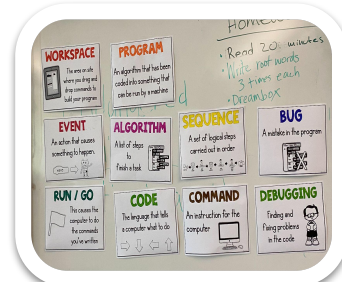 Homew
• Read 20 minutes
• Write root words
3 times each
• Dreambox
WORKSPACE
The area on site
where you drag and
drop commands to
build your program
PROGRAM
An algorithm that has been
coded into something that
can be run by a machine
EVENT
An action that causes
something to happen.
ALGORITHM
A list of steps
to
finish a task
SEQUENCE
A set of logical steps
carried out in order
BUG
A mistake in the program
RUN / GO
This causes the
computer to do
the commands
you've written
CODE
The language that tells
a computer what to do
COMMAND
An instruction for the
computer
DEBUGGING
Finding and
fixing problems
in the code